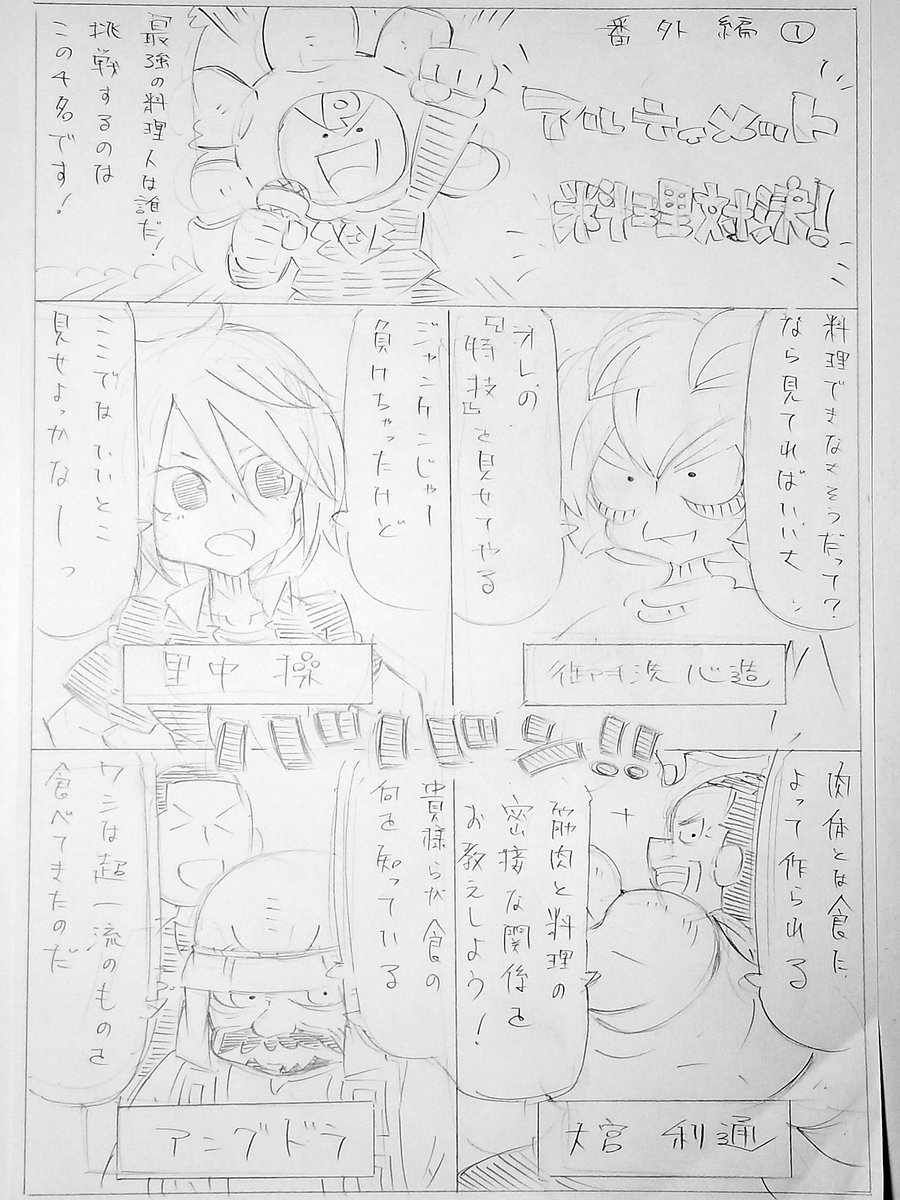 番外編①
アルティメット
料理対決!
最強の料理人は誰だ!
挑戦するのは
この4名です!
料理できなさそうだって?
なら見てればいいさ
オレの
『特技』を見せてやる
御手洗 心造
ジャンケンじゃー
負けちゃったけど
ここではいいとこ
見せよっかなーっ
里中 操
肉体とは食に
よって作られる
筋肉と料理の
密接な関係を
お教えしよう!
大宮 利通
貴様らが食の
何を知っている
ワシは超一流のものを
食べてきたのだ
アングドラ